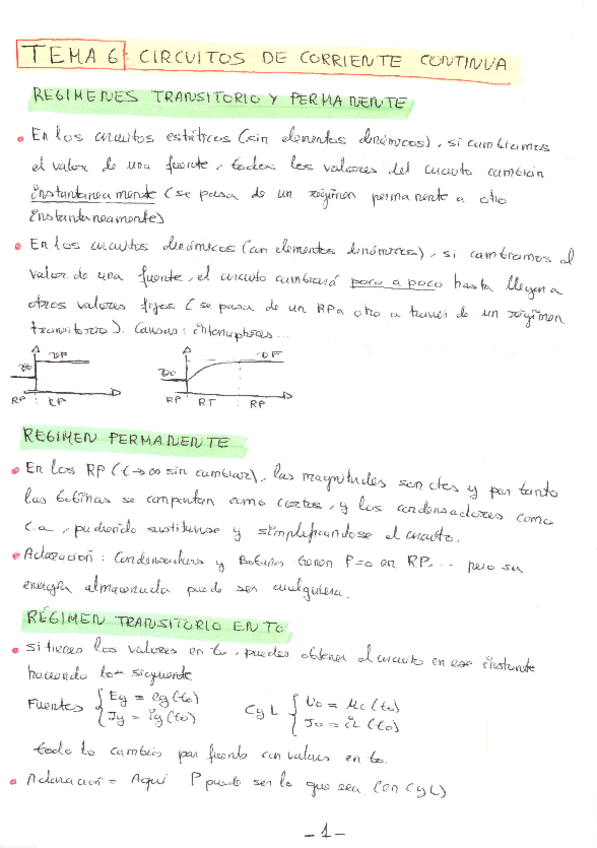 TEMA 6: CIRCUITOS DE CORRIENTE CONTINUA
REGIMENES TRANSITORIO Y PERMANENTE
• En los circuitos estáticos (sin elementos dinámicos), si cambiamos
el valor de una fuente, todos los valores del circuito cambian
instantaneamente (se pasa de un régimen permanente a otro
instantaneamente)
• En los circuitos dinámicos (con elementos dinámicos), si cambiamos el
valor de una fuente, el circuito cambiará poco a poco hasta llegar a
otros valores fijos (se pasa de un RP a otro a través de un régimen
transitorio). Causas: interruptores...
VF VF
V0 V0
RP RP RP RT RP
REGIMEN PERMANENTE
• En los RP (t→∞ sin cambiar), las magnitudes son ctes y por tanto
las bobinas se comportan como cortos, y los condensadores como
c.a, pudiendo sustituirse y simplificandose el circuito.
• Aclaración: Condensadores y Bobinas tienen P=0 en RP... pero su
energía almacenada puede ser cualquiera.
RÉGIMEN TRANSITORIO EN T0
• Si tienes los valores en t0, puedes obtener el circuito en ese instante
haciendo lo siguiente
Fuentes { Eg = eg(t0) C y L { U0 = uc(t0)
Jg = ig(t0) J0 = iL(t0)
todo lo cambias por fuente con valores en t0.
• Aclaración = Aquí P puede ser lo que sea. (en C y L)
- 1 -